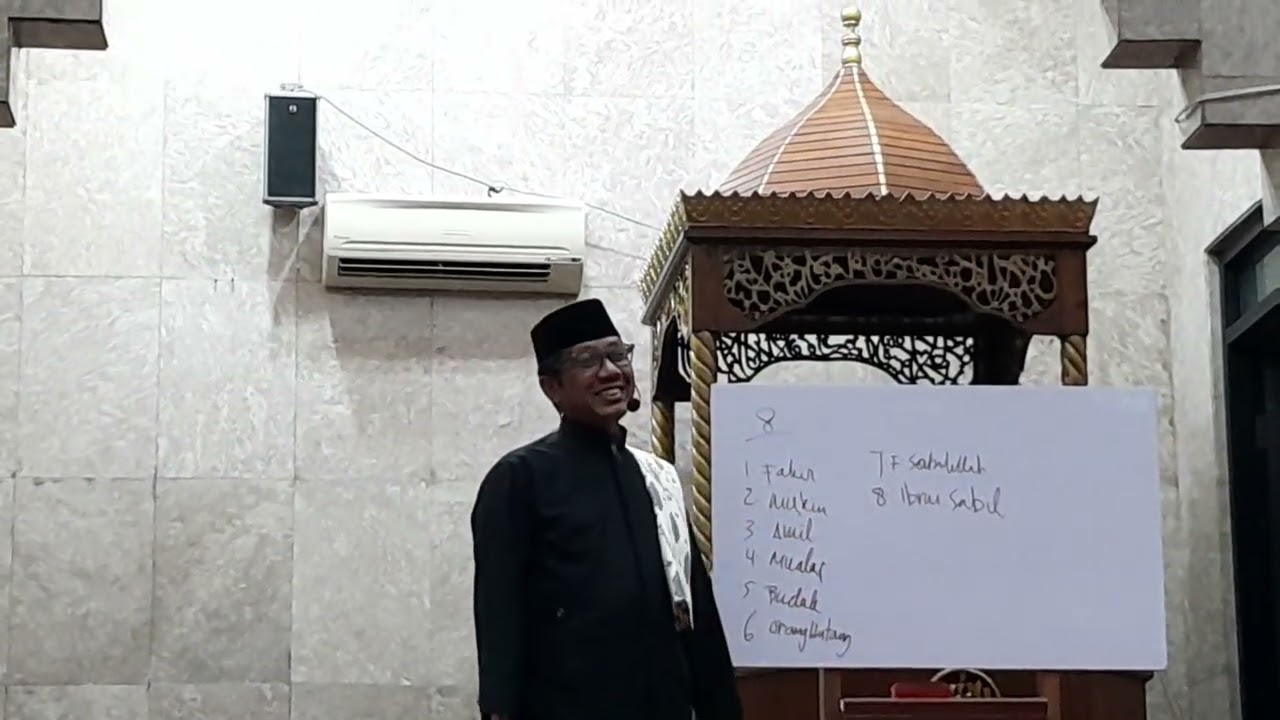 8
1 Fakir
2 Miskin
3 Amil
4 Mualaf
5 Budak
6 orang Hutang
7 F Sabilillah
8 Ibnu Sabil